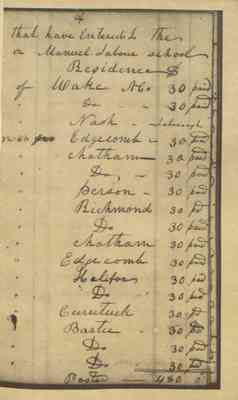 that have Entered the
a Manuel Labour school
Residence $
of Wake Nc 30 paid
" Do 30 paid
" Nash
" Edgecomb 30 paid
" Chatham 30 paid
" Do 30 paid
" Person 30 paid
" Richmond 30 pd
" Do 30 paid
" Chatham 30 paid
" Edgecomb 30 pd
" Halifax 30 pd
" Do 30 pd
" Curutuck 30 pd
" Bertie 30 pd
" Do 30 pd
" Do 30 pd
480